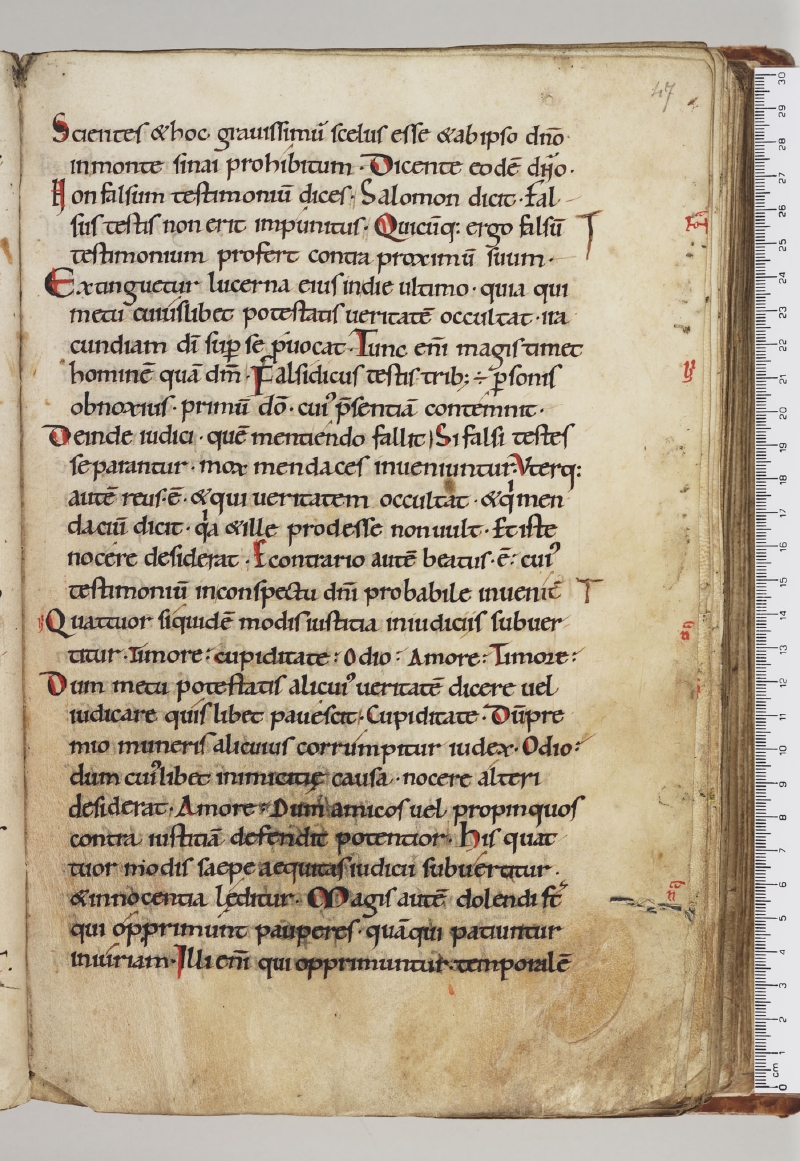 47
Scientes & hoc grauissimū scelus esse & ab ipso dn̄o
in monte sinai prohibitum · Dicente eodē dn̄o ·
Non falsum testimoniū dices · Salomon dicit · fal
sus testis non erit impunitus · Quicūq: ergo falsū
testimonium profert contra proximū suum ·
Extinguetur lucerna eius in die ultimo · quia qui
metu cuiuslibet potestatis ueritatē occultat · ira
cundiam dī sup̱ se p̱uocat · Tunc enī magis timet
hominē quā dm̄ · Falsidicus testis trib: ÷ p̱sonis
obnoxius · primū dō · cui᾽ p̄sentiā contemnit ·
Deinde iudici · quē mentiendo fallit Si falsi testes
separantur · mox mendaces inueniuntur · Vterq:
autē reus · ē · & qui ueritatem occultat · & q̍ men
daciū dicit · q̄a & ille prodesse non uult · Et iste
nocere desiderat · E contrario autē beatus · ē · cui᾽
testimoniū in conspectu dn̄i probabile inuenit
Quattuor siquidē modis iustitia in iudiciis subuer
titur · Timore : cupiditate : Odio : Amore : Timore :
Dum metu potestatis alicui᾽ ueritatē dicere uel
iudicare quislibet pauescit · Cupiditate · Dū pre
mio muneris alicuius corrumpitur iudex · Odio :
dum cui᾽libet inimicitię causa · nocere alteri
desiderat · Amore : Dum amicos uel propinquos
contra iustitiā defendit potentior · His quat
tuor modis saepe aequitas iudicii subuertitur ·
& innocentia lęditur · Magis autē dolendi st̄
qui opprimunt pauperes · quā qui patiuntur
iniuriam · Illi enī qui opprimuntur · temporalē